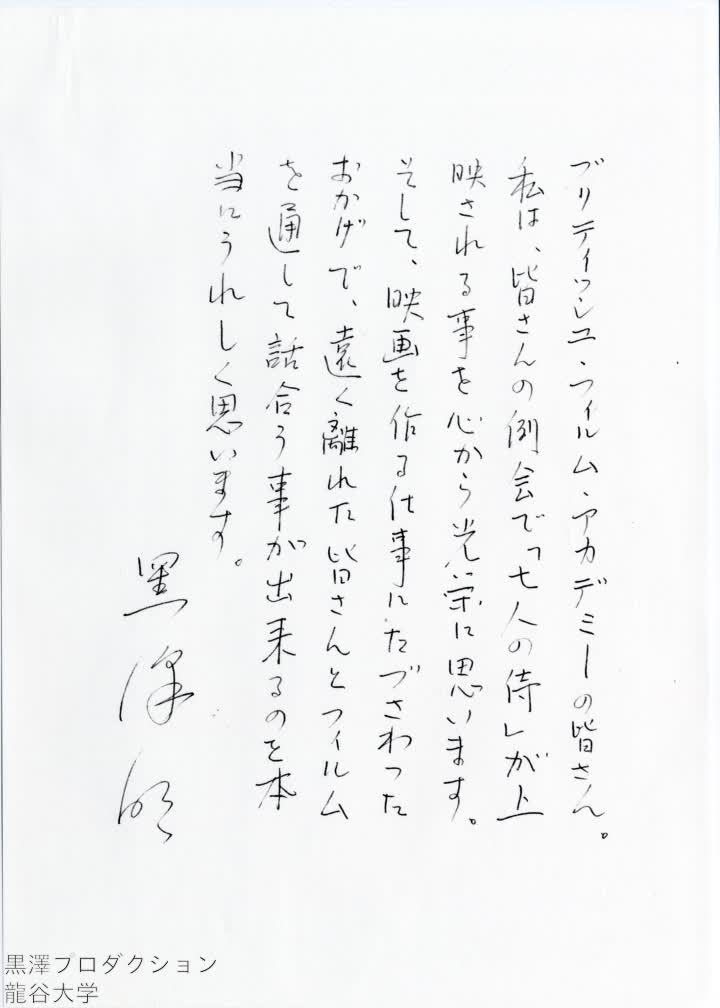 ブリティッシュ・フィルム・アカデミーの皆さん。
私は、皆さんの例会で「七人の侍」が上
映される事を心から光栄に思います。
そして、映画を作る仕事にたづさわった
おかげで、遠く離れた皆さんとフィルム
を通して話合う事が出来るのを本
当にうれしく思います。
黒澤明
黒澤プロダクション
龍谷大学